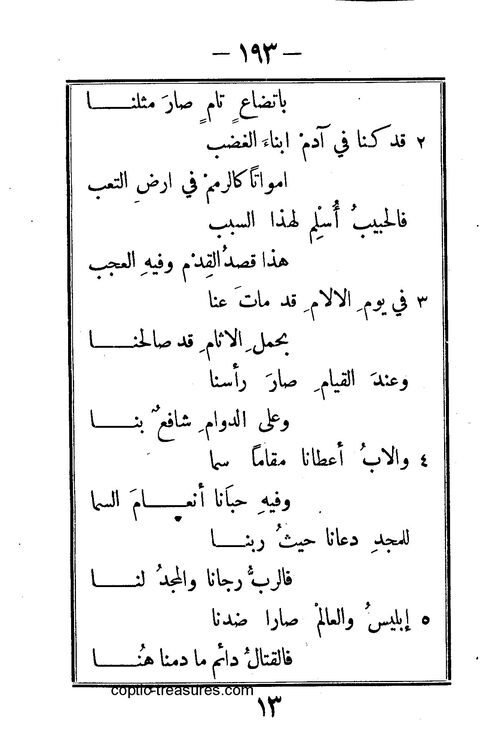 — ١٩٣ —
باتضاعٍ تامٍ صارَ مثلنـــا
٢ قد كنا في آدمْ ابناءَ الغضب
امواتاً كالرممْ في ارضِ التعب
فالحبيبُ أُسْلِم لهذا السبب
هذا قصدُ القِدْم وفيهِ العجب
٣ في يومِ الالامِ قد ماتَ عنا
بحملِ الاثامِ قد صالحنـــا
وعندَ القيامِ صارَ رأسنا
وعلى الدوامِ شافعٌ بنـــا
٤ والابُ أعطانا مقاماً سما
وفيهِ حبَانا أنعـــامَ السما
للمجدِ دعانا حيثُ ربنـــا
فالربُّ رجانا والمجدُ لنـــا
٥ إبليسُ والعالمْ صارا ضدنا
فالقتالُ دائم ما دمنا هُنـــا
coptic-treasures.com
١٣